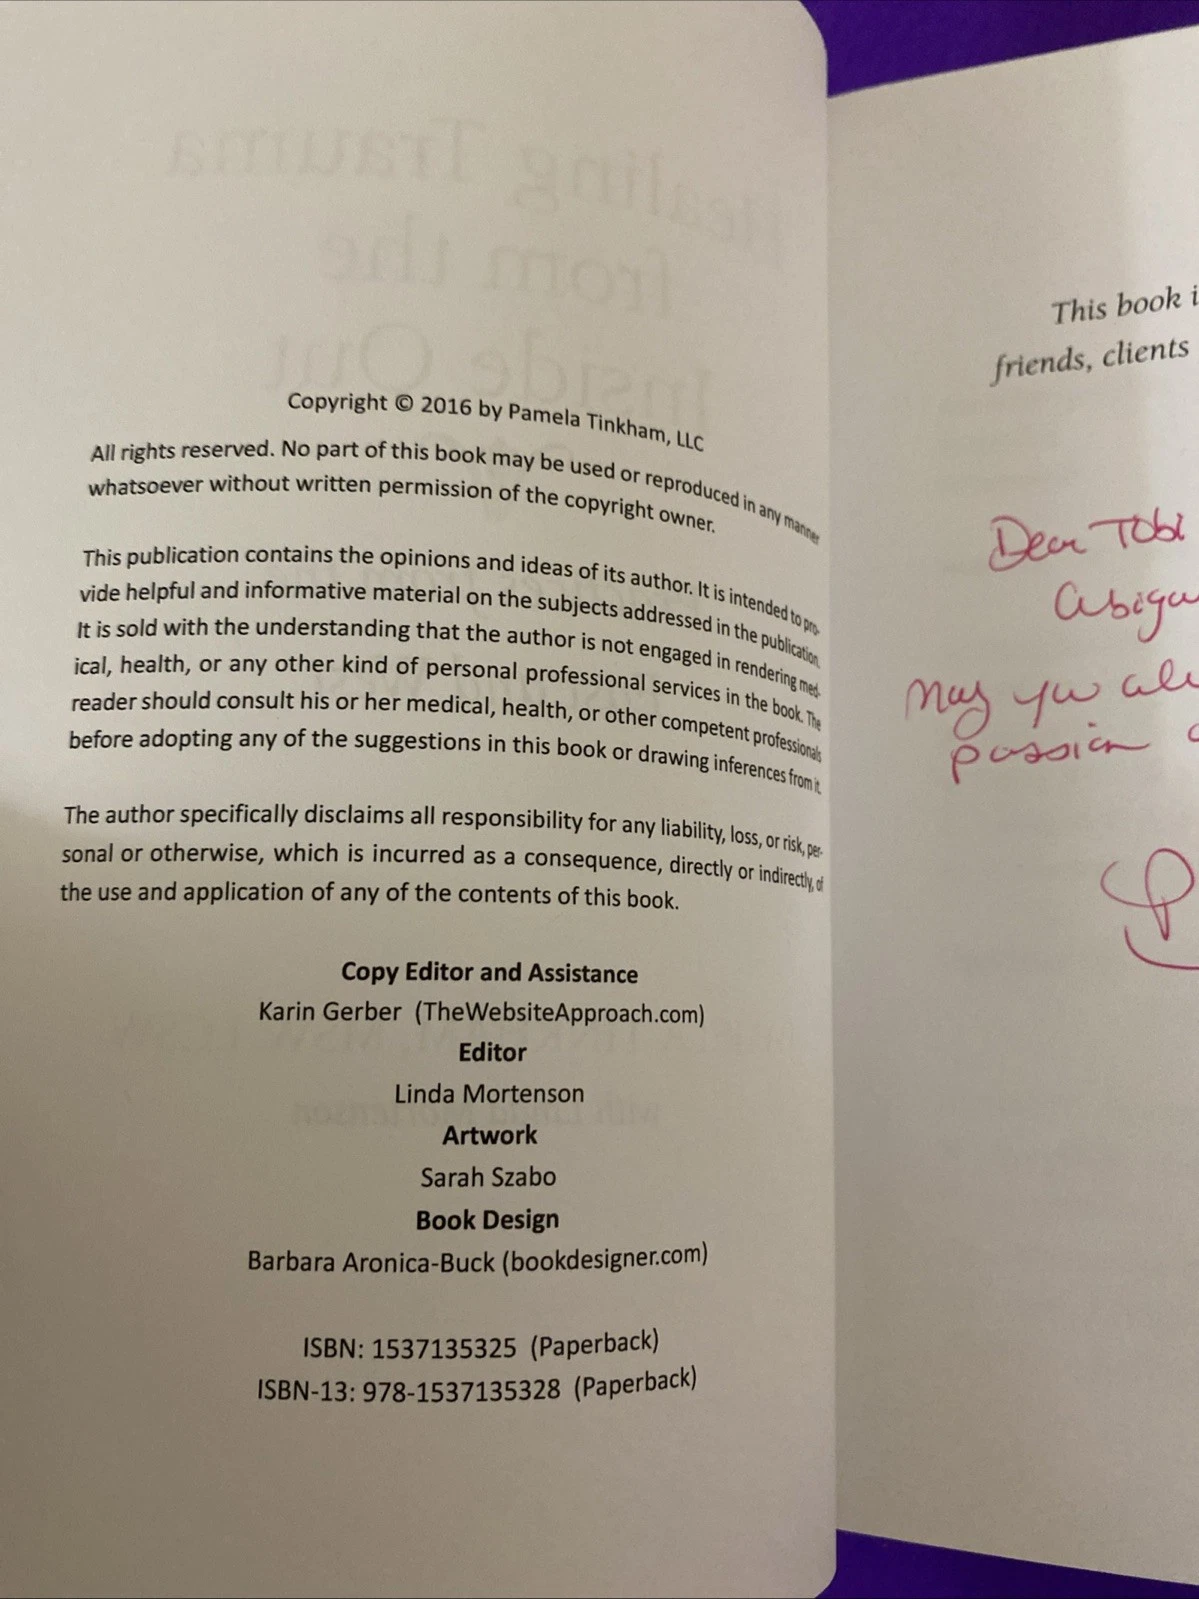 Copyright © 2016 by Pamela Tinkham, LLC
All rights reserved. No part of this book may be used or reproduced in any manner
whatsoever without written permission of the copyright owner.
This publication contains the opinions and ideas of its author. It is intended to pro-
vide helpful and informative material on the subjects addressed in the publication.
It is sold with the understanding that the author is not engaged in rendering med-
ical, health, or any other kind of personal professional services in the book. The
reader should consult his or her medical, health, or other competent professionals
before adopting any of the suggestions in this book or drawing inferences from it.
The author specifically disclaims all responsibility for any liability, loss, or risk, per-
sonal or otherwise, which is incurred as a consequence, directly or indirectly, of
the use and application of any of the contents of this book.
Copy Editor and Assistance
Karin Gerber (TheWebsiteApproach.com)
Editor
Linda Mortenson
Artwork
Sarah Szabo
Book Design
Barbara Aronica-Buck (bookdesigner.com)
ISBN: 1537135325 (Paperback)
ISBN-13: 978-1537135328 (Paperback)
This book i
friends, clients
Dear Tobi
abiga
May you
passion